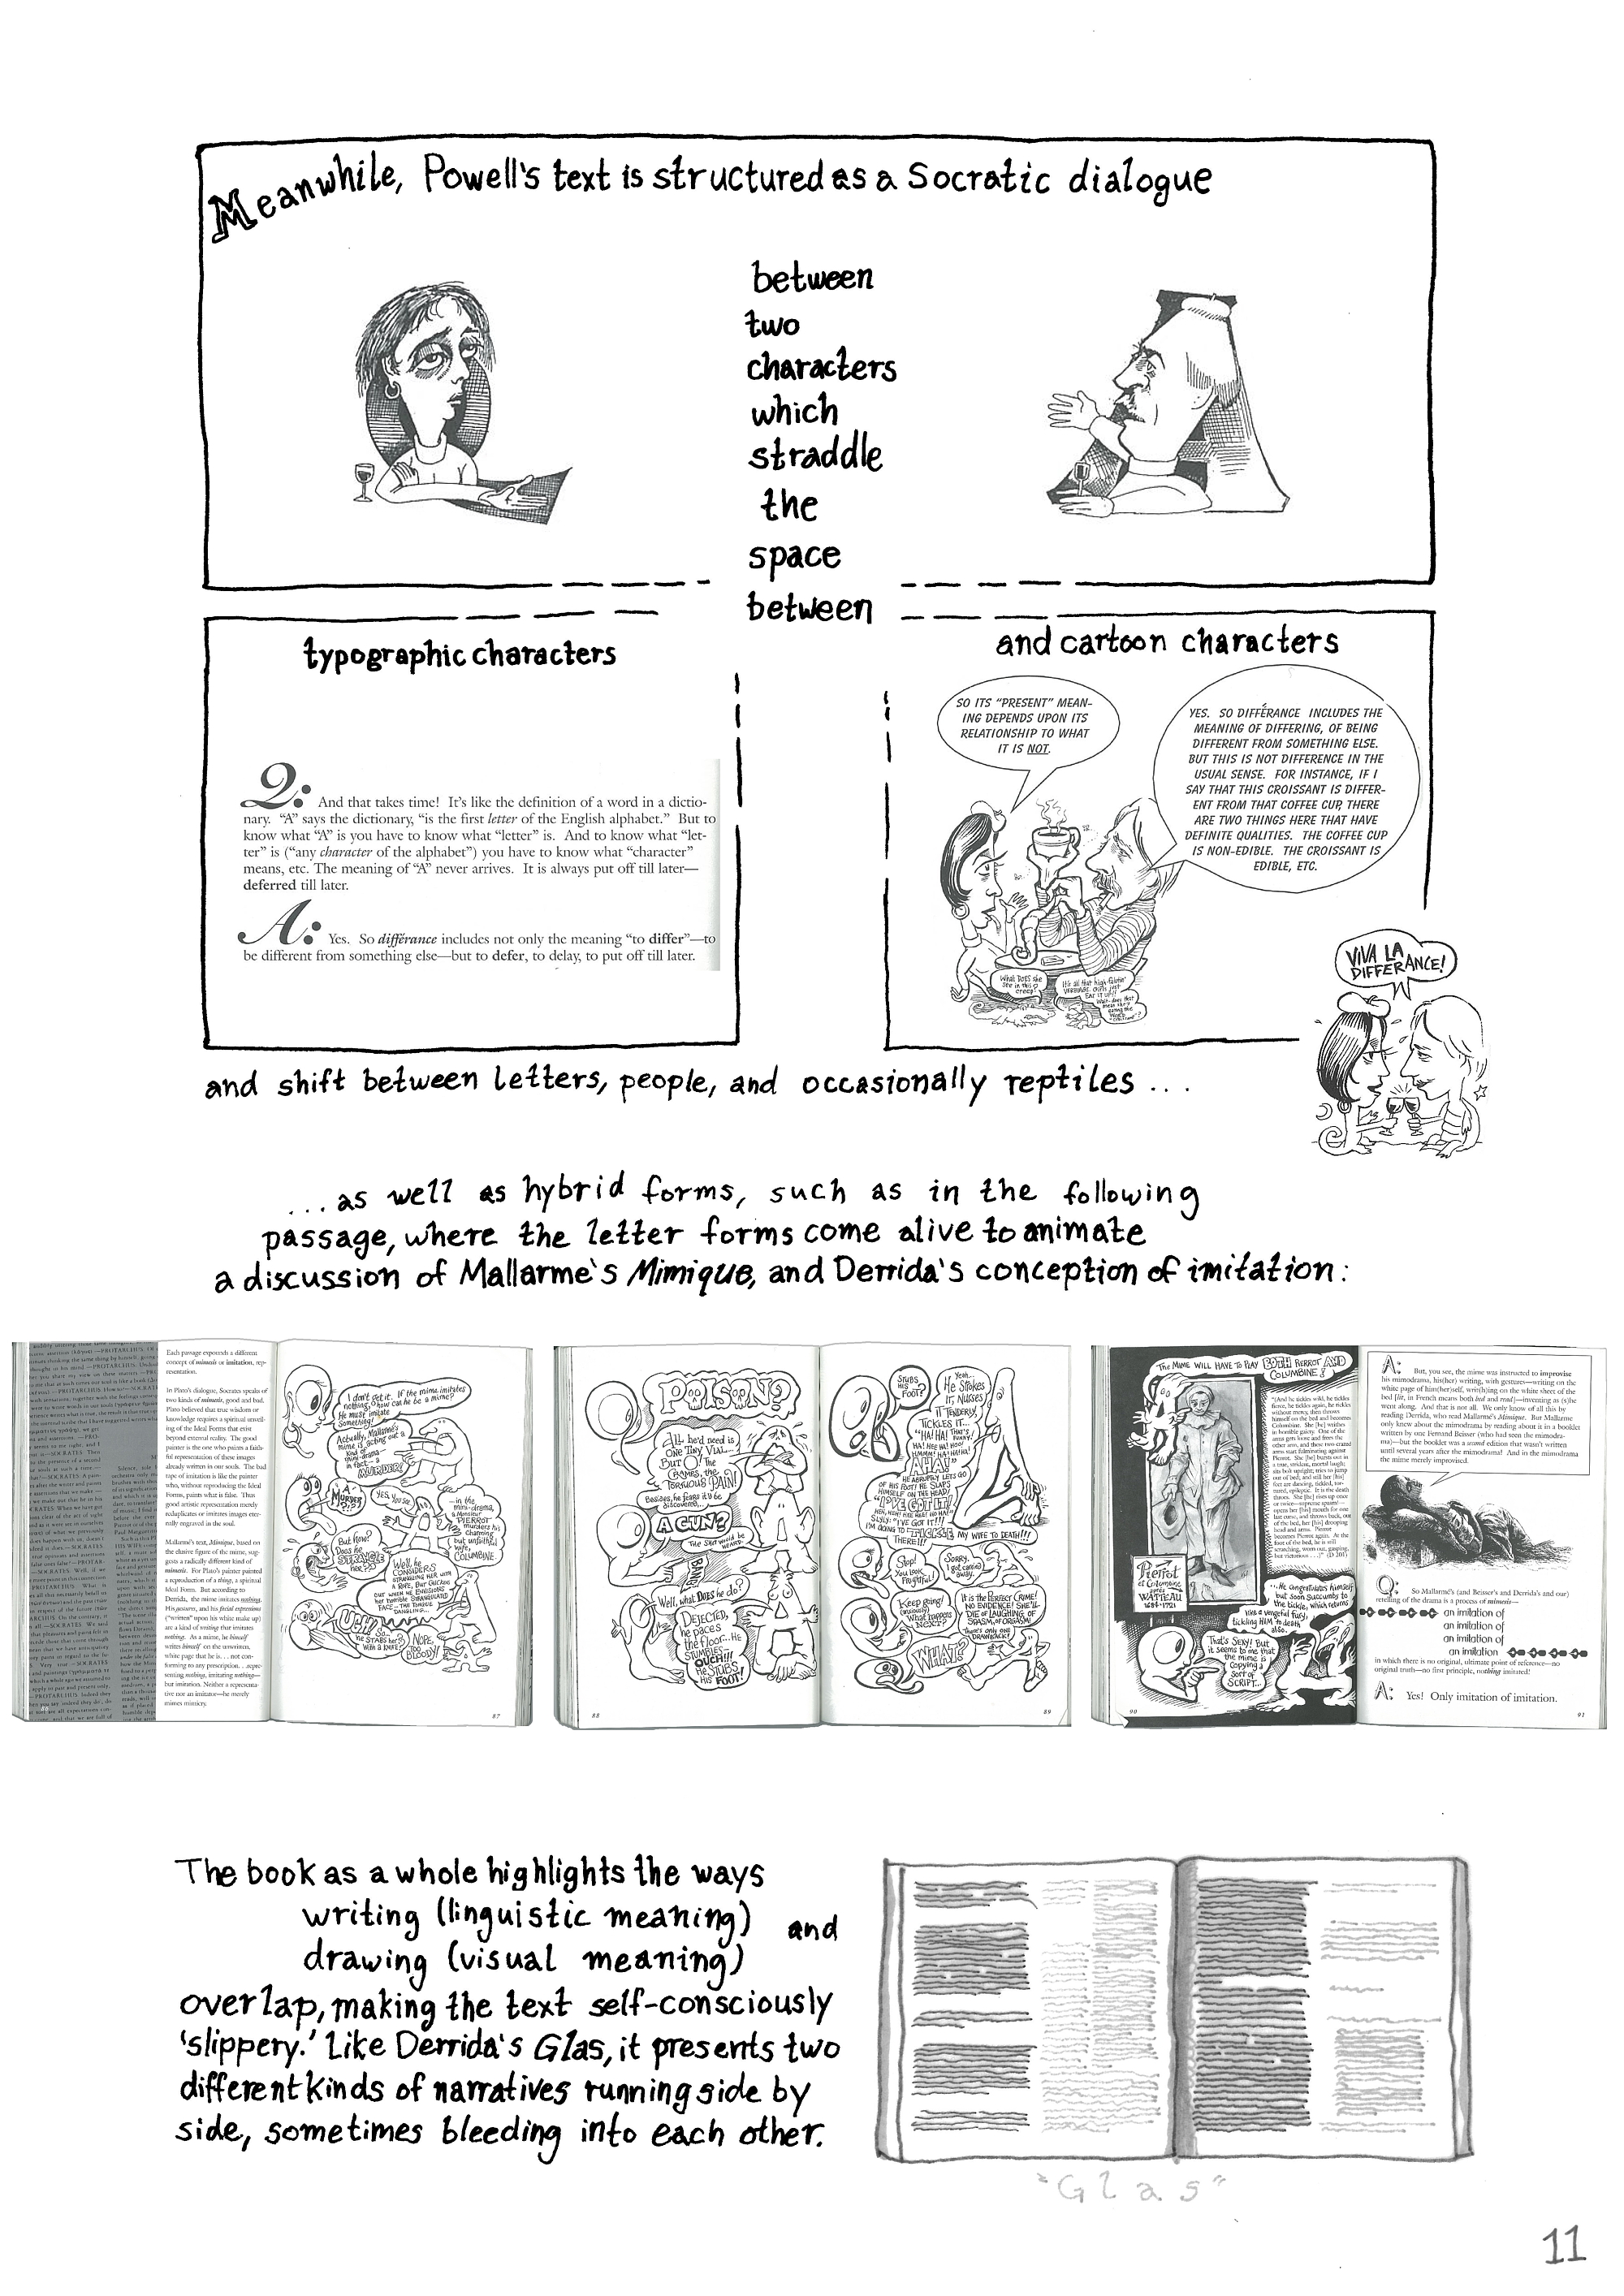 Meanwhile, Powell's text is structured as a Socratic dialogue
between
two
characters
which
straddle
the
space
between
typographic characters
Q: And that takes time! It's like the definition of a word in a dictio-
nary. "A" says the dictionary, "is the first letter of the English alphabet." But to
know what "A" is you have to know what "letter" is. And to know what "let-
ter" is ("any character of the alphabet") you have to know what "character"
means, etc. The meaning of "A" never arrives. It is always put off till later—
deferred till later.
A: Yes. So différance includes not only the meaning "to differ"—to
be different from something else—but to defer, to delay, to put off till later.
and cartoon characters
SO ITS "PRESENT" MEAN-
ING DEPENDS UPON ITS
RELATIONSHIP TO WHAT
IT IS NOT.
YES. SO DIFFÉRANCE INCLUDES THE
MEANING OF DIFFERING, OF BEING
DIFFERENT FROM SOMETHING ELSE.
BUT THIS IS NOT DIFFERENCE IN THE
USUAL SENSE. FOR INSTANCE, IF I
SAY THAT THIS CROISSANT IS DIFFER-
ENT FROM THAT COFFEE CUP, THERE
ARE TWO THINGS HERE THAT HAVE
DEFINITE QUALITIES. THE COFFEE CUP
IS NON-EDIBLE. THE CROISSANT IS
EDIBLE, ETC.
What DOES she
see in this
creep?
It's all that high-falutin'
VERBIAGE. Girls just
EAT IT UP!!
VIVA LA
DIFFERANCE!
and shift between letters, people, and occasionally reptiles ...
...as well as hybrid forms, such as in the following
passage, where the letter forms come alive to animate
a discussion of Mallarme's Mimique, and Derrida's conception of imitation:
Each passage expounds a different
concept of mimesis or imitation, rep-
resentation.
In Plato's dialogue, Socrates speaks of
two kinds of mimesis, good and bad.
Plato believed that true wisdom or
knowledge requires a spiritual unveil-
ing of the Ideal Forms that exist
beyond external reality. The good
painter is the one who paints a faith-
ful representation of these images
already written in our souls. The bad
type of imitation is like the painter
who, without reproducing the Ideal
Forms, paints what is false. Thus
good artistic representation merely
reduplicates or imitates images eter-
nally engraved in the soul.
Mallarmé's text, Mimique, based on
the elusive figure of the mime, sug-
gests a radically different kind of
mimesis. For Plato's painter painted
a reproduction of a thing, a spiritual
Ideal Form. But according to
Derrida, the mime imitates nothing.
His gestures, and facial expressions
("written" upon his white make up)
are a kind of writing that imitates
nothing. As a mime, he himself
writes himself on the unwritten,
white page that he is. . . not con-
forming to any prescription. . .repre-
senting nothing, imitating nothing—
but imitation. Neither a representa-
tive nor an imitator—he merely
mimes mimicry.
I don't get it. If the mime imitates
nothing, how can he be a mime?
He must imitate
Something!
Actually, Mallarmé's
mime is acting out a
kind of
mini-drama—
in fact— a
MURDER!
A-
MURDER
???
YES, you see,
—in the
mini-drama,
a Monsieur
PIERROT
murders his
charming
but unfaithful
wife,
COLUMBINE.
But How?
Does he
STRANGLE
her??
Well, he
CONSIDERS
STRANGLING HER WITH
A ROPE, BUT GUCKED
OUT WHEN HE ENVISIONS
her Horrible STRANGULATED
FACE...THE TONGUE
DANGLING...
UGH! So...
he STABS her
WITH a KNIFE?
NOPE,
TOO
BLOODY!
87
POISON?
ALL he'd need is
ONE TINY VIAL...
BUT O! THE
CRAMPS, the
TORTUOUS PAIN!
Besides, he fears it'd be
discovered...
A GUN?
The SHOT would be
HEARD.
BANG!
Well, what DOES he do?
DEJECTED,
he paces
the floor...HE
STUMBLES—
OUCH!!!
HE STUBS
HIS FOOT!
88
STUBS
HIS
FOOT?
Yeah...
He STROKES
IT, NURSES
IT TENDERLY,
TICKLES IT...
"HA! HA! THAT'S
FUNNY.
AHA!"
HE ABRUPTLY LETS GO
OF HIS FOOT! HE SLAPS
HIMSELF ON THE HEAD!
"I'VE GOT IT!
SLYLY: "I'VE GOT IT!!!
I'M GOING TO TICKLE MY WIFE TO DEATH!!!
THERE!!!
Stop!
You look
Frightful!
SORRY,
I got carried
away.
Keep going!
What happens
NEXT?
It is the PERFECT CRIME!
NO EVIDENCE! SHE'LL
DIE of LAUGHING, OF
SPASM, OF ORGASM!
There's only one
DRAWBACK!
WHAT?
89
The MIME WILL HAVE TO PLAY BOTH PIERROT AND
COLUMBINE!
Pierrot
WATTEAU
1684-1721
...He congratulates himself
but soon succumbs to
the tickle, which returns
like a vengeful fury,
tickling HIM to death
also.
That's SEXY! BUT
it seems to me that
the mime is
COPYING a
SORT OF
SCRIPT...
90
A: But, you see, the mime was instructed to improvise
his mimodrama, his(her) writing, with gestures—writing on the
white page of him(her)self, writ(h)ing on the white sheet of the
bed [lit, in French means both bed and read]—inventing as (s)he
went along. And that is not all. We only know of all this by
reading Derrida, who read Mallarmé's Mimique. But Mallarmé
only knew about the mimodrama by reading about it in a booklet
written by one Fernand Beisser (who had seen the mimodra-
ma)—but the booklet was a second edition that wasn't written
until several years after the mimodrama! And in the mimodrama
the mime merely improvised.
Q: So Mallarmé's (and Beisser's and Derrida's and our)
retelling of the drama is a process of mimesis—
an imitation of
an imitation of
an imitation of
an imitation
in which there is no original, ultimate point of reference—no
original truth—no first principle, nothing imitated!
A: Yes! Only imitation of imitation.
91
The book as a whole highlights the ways
writing (linguistic meaning) and
drawing (visual meaning)
overlap, making the text self-consciously
'slippery.' Like Derrida's Glas, it presents two
different kinds of narratives running side by
side, sometimes bleeding into each other.
"Glas"
11